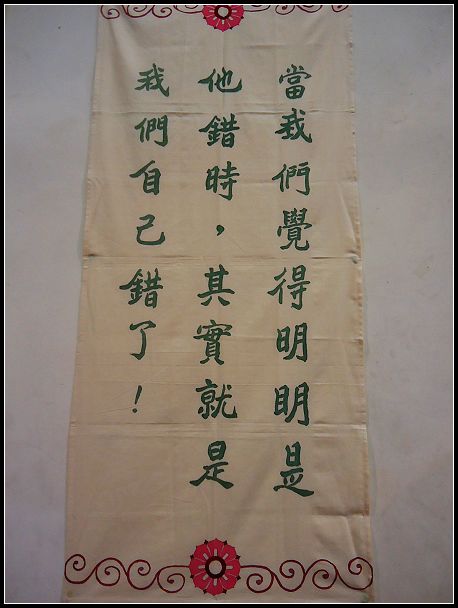 當我們覺得明明是
他錯時，其實就是
我們自己錯了！